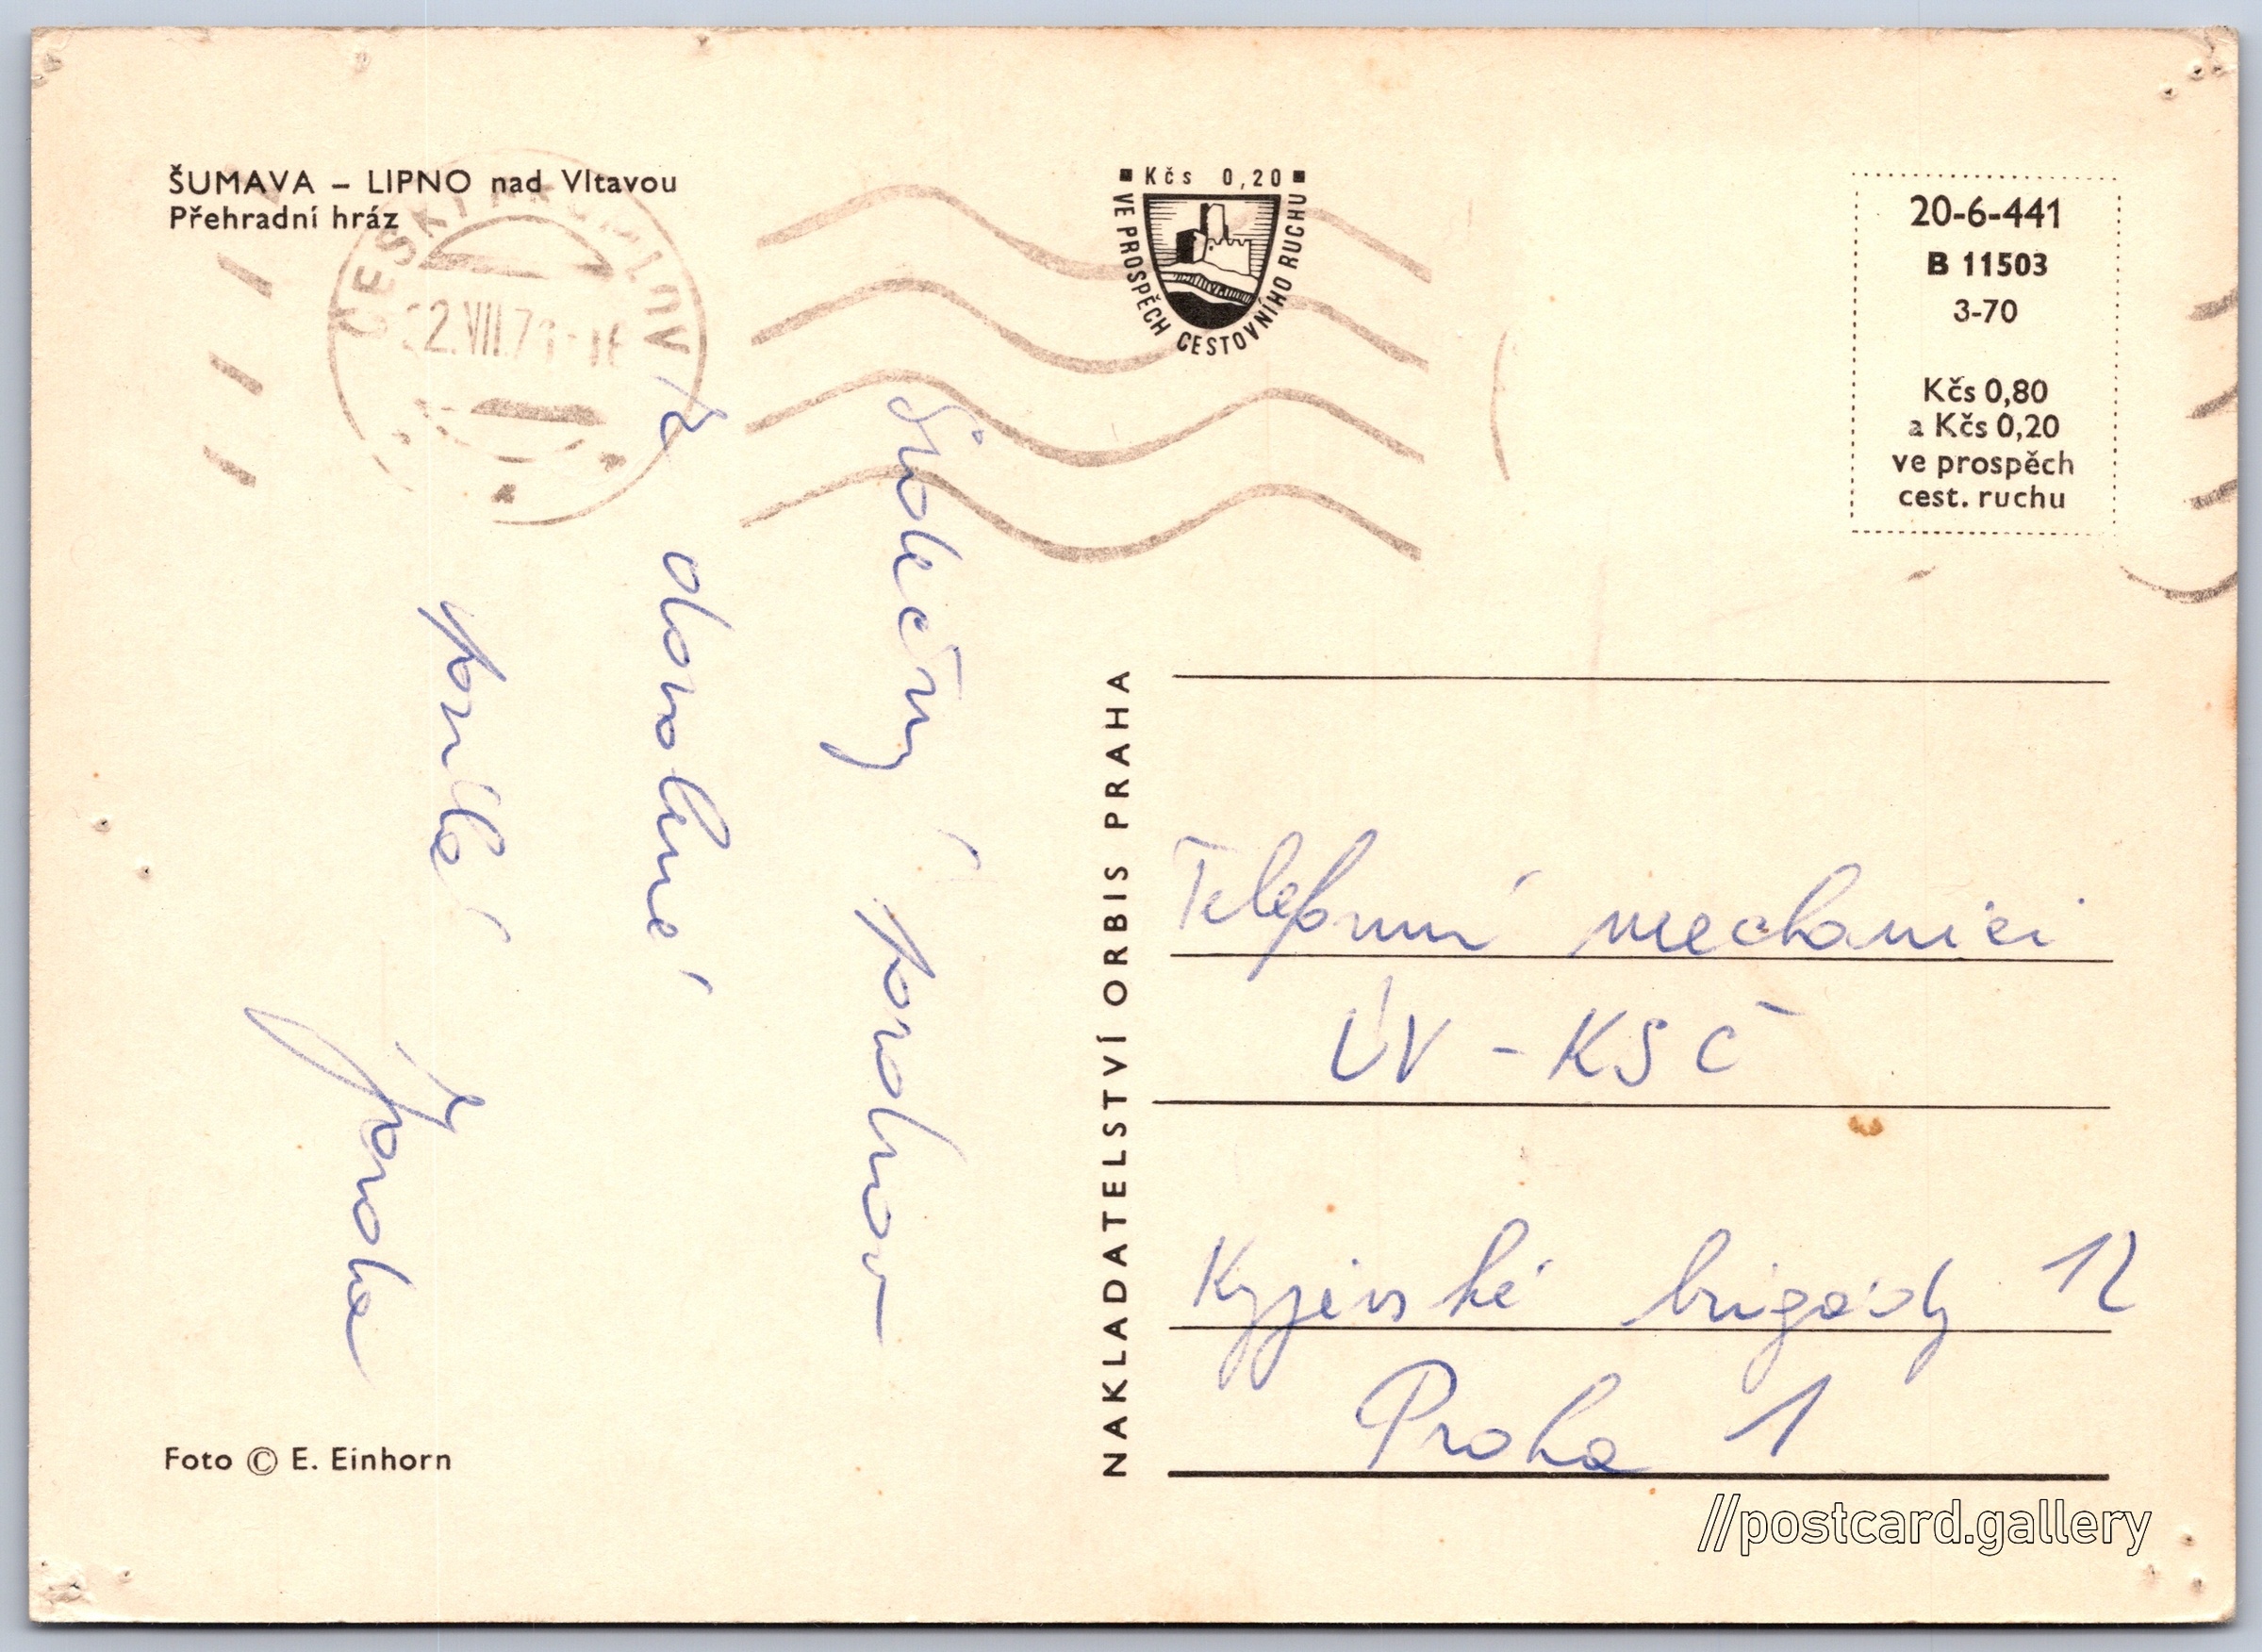 ŠUMAVA – LIPNO nad Vltavou
Přehradní hráz
ČESKÝ KRUMLOV
22.VII.7
■ Kčs 0,20 ■
VE PROSPĚCH CESTOVNÍHO RUCHU
20-6-441
B 11503
3-70
Kčs 0,80
a Kčs 0,20
ve prospěch
cest. ruchu
Srdečný pozdrav
z dovolené
posílá
Jarda
NAKLADATELSTVÍ ORBIS PRAHA
Telefonní mechanici
ÚV - KSČ
Kyjevské brigády 12
Praha 1
Foto © E. Einhorn
//postcard.gallery